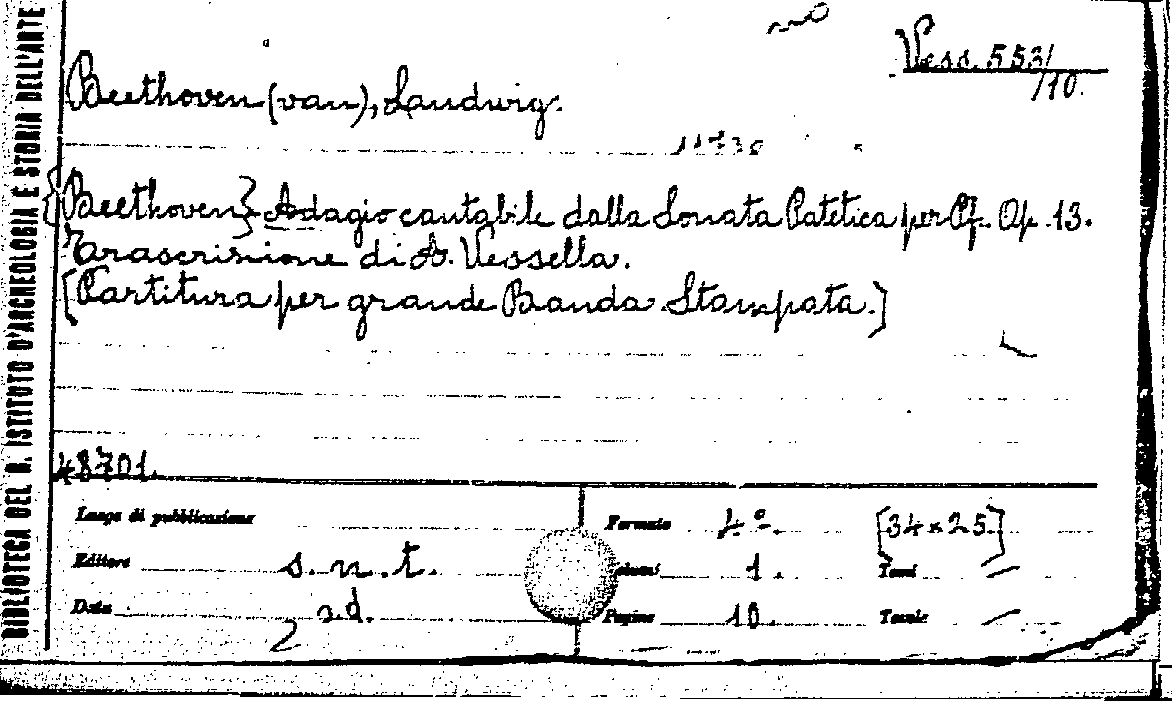 BIBLIOTECA DEL R. ISTITUTO D'ARCHEOLOGIA E STORIA DELL'ARTE
Vess. 553/
/10.
Beethoven (van), Laudwig.
{Beethoven} Adagio cantabile dalla Sonata Patetica per Pf. Op. 13.
Trascrizione di A. Vessella.
[Partitura per grande Banda Stampata.]
48701.
Luogo di pubblicazione
Formato 4º. [34x25]
Editore s.n.t.
1. Tomi —
Data s.d.
Pagine 10. Tavole —
2